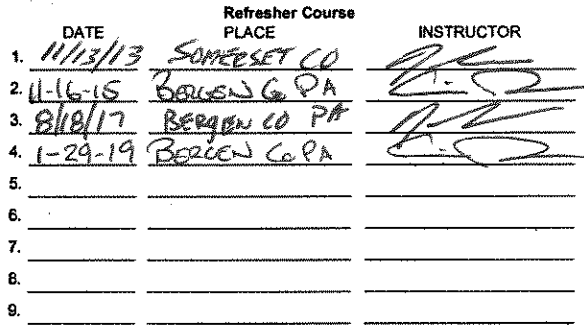 Refresher Course
DATE PLACE INSTRUCTOR
1. 11/13/13 SOMERSET CO
2. 11-16-15 BERGEN Co PA
3. 8/18/17 BERGEN CO PA
4. 1-29-19 BERGEN Co PA
5.
6.
7.
8.
9.